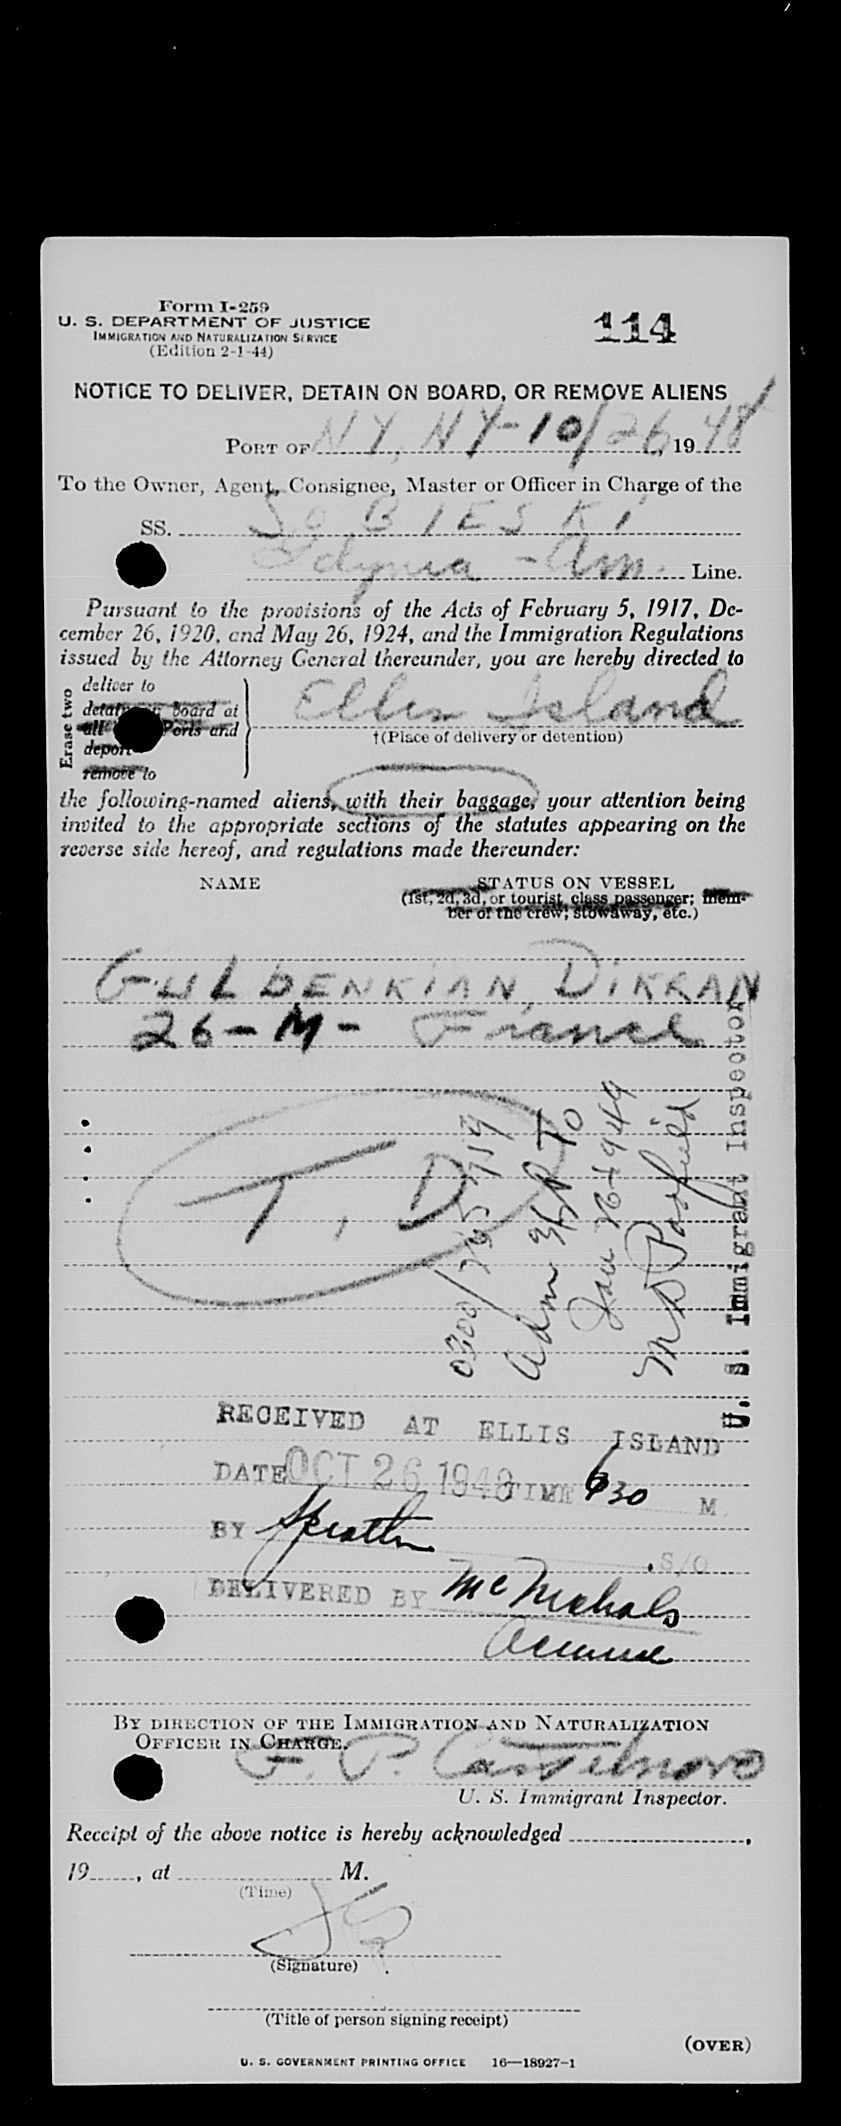 Form I-259
U. S. DEPARTMENT OF JUSTICE
IMMIGRATION AND NATURALIZATION SERVICE
(Edition 2-1-44)
114
NOTICE TO DELIVER, DETAIN ON BOARD, OR REMOVE ALIENS
PORT OF NY, NY-10/26, 1948
To the Owner, Agent, Consignee, Master or Officer in Charge of the
SS. SOBIESKI
Gdynia - Am. Line.
Pursuant to the provisions of the Acts of February 5, 1917, De-
cember 26, 1920, and May 26, 1924, and the Immigration Regulations
issued by the Attorney General thereunder, you are hereby directed to
Erase two
deliver to
detain on board at
all Ports and
deport
remove to
Ellis Island
†(Place of delivery or detention)
the following-named aliens, with their baggage, your attention being
invited to the appropriate sections of the statutes appearing on the
reverse side hereof, and regulations made thereunder:
NAME
STATUS ON VESSEL
(1st, 2d, 3d, or tourist class passenger; mem-
ber of the crew; stowaway, etc.)
GULDENKIAN, DIKRAN
26-M- France
T, D
0300/
Adm
Jan 26 1949
U. S. Immigrant Inspector
RECEIVED AT ELLIS ISLAND
DATE OCT 26 1948 TIME 630 M
BY , S/O
DELIVERED BY McNichols
BY DIRECTION OF THE IMMIGRATION AND NATURALIZATION
OFFICER IN CHARGE.
F. P. Castelnovo
U. S. Immigrant Inspector.
Receipt of the above notice is hereby acknowledged ,
19 , at M.
(Time)
(Signature)
(Title of person signing receipt)
(OVER)
U. S. GOVERNMENT PRINTING OFFICE 16—18927-1